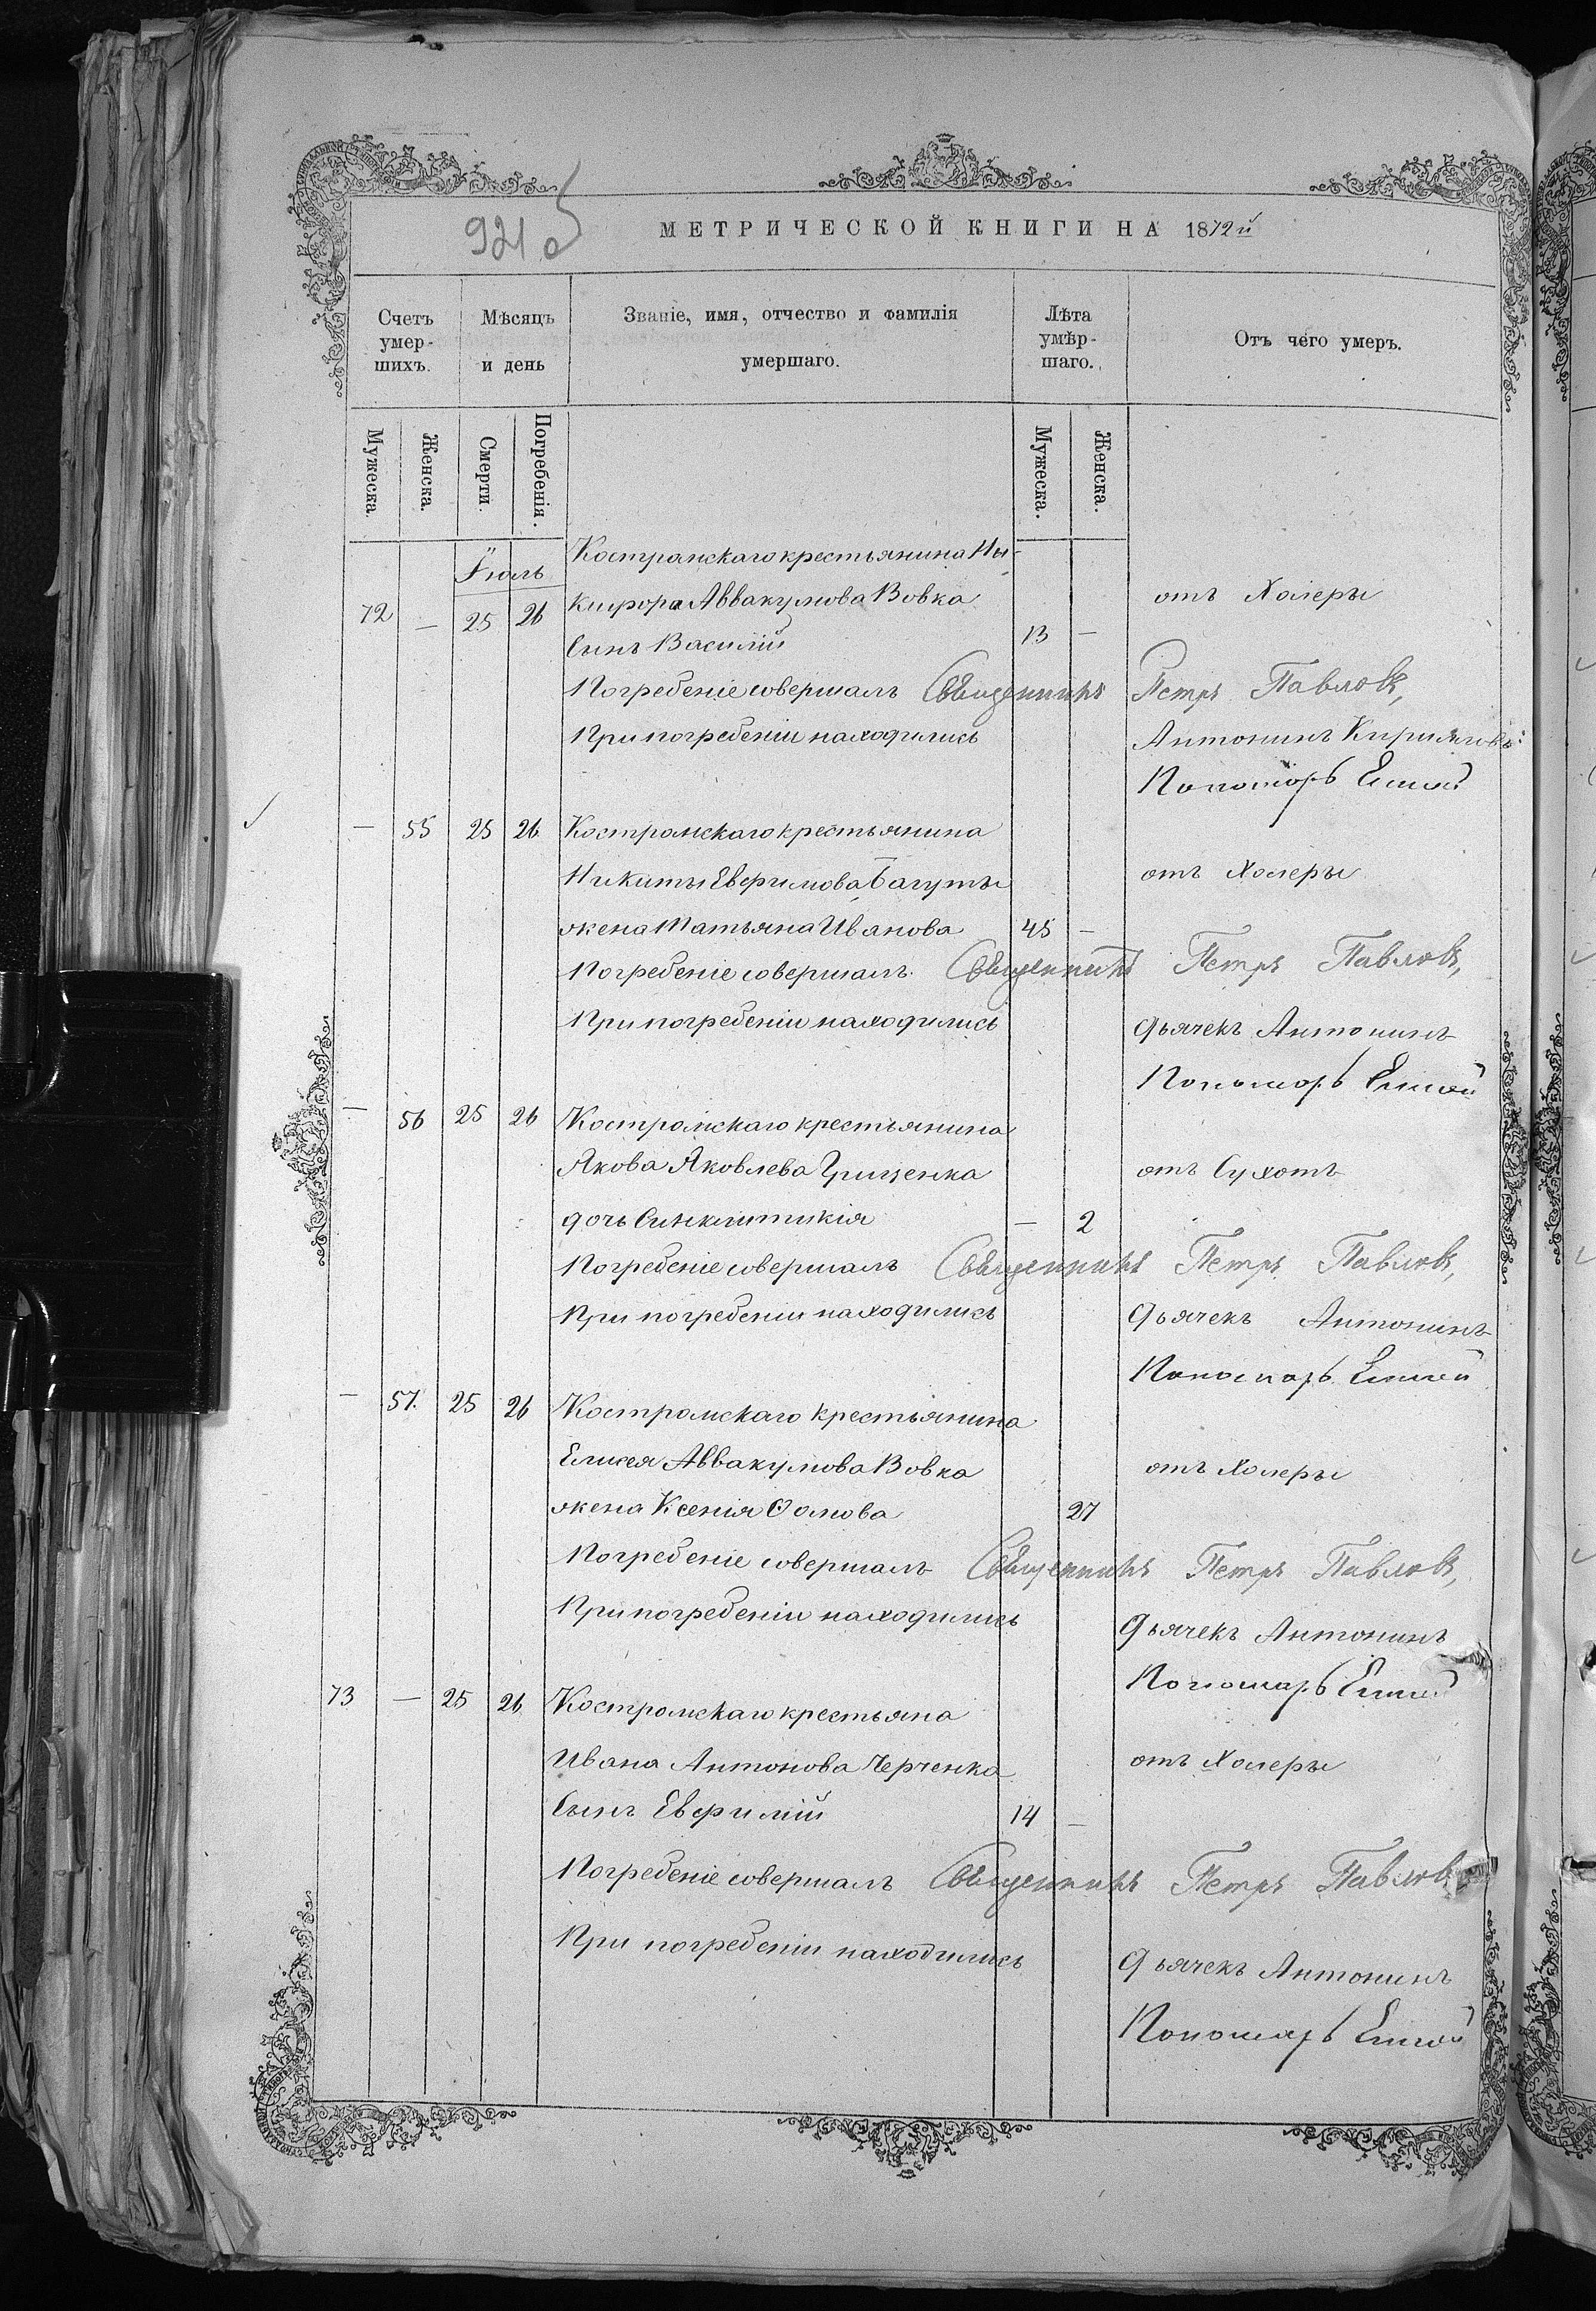 921 об
МЕТРИЧЕСКОЙ КНИГИ НА 1872й
Счетъ умер-шихъ.
Мѣсяцъ и день
Званіе, имя, отчество и фамилія умершаго.
Лѣта умѣр-шаго.
Отъ чего умеръ.
Мужеска. Женска. Смерти. Погребенія. Мужеска. Женска.
Іюль Костромскаго крестьянина Ни-
72 — 25 26 кифора Аввакумова Вовка отъ Холеры
Сынъ Василій 13 —
Погребеніе совершалъ Священникъ Петръ Павловъ,
При погребеніи находились Антонинъ Кириловъ
Пономарь Елисей
— 55 25 26 Костромскаго крестьянина
Никиты Евфимова Багуты отъ Холеры
жена Татьяна Иванова 45 —
Погребеніе совершалъ Священникъ Петръ Павловъ,
При погребеніи находились дьячекъ Антонинъ
Пономарь Елисей
— 56 25 26 Костромскаго крестьянина
Якова Яковлева Грищенка отъ Сухотъ
дочь Синклитикія — 2
Погребеніе совершалъ Священникъ Петръ Павловъ,
При погребеніи находились дьячекъ Антонинъ
Пономарь Елисей
— 57. 25 26 Костромскаго крестьянина
Елисея Аввакумова Вовка отъ Холеры
жена Ксенія Ѳомова 27
Погребеніе совершалъ Священникъ Петръ Павловъ,
При погребеніи находились дьячекъ Антонинъ
Пономарь Елисей
73 — 25 26 Костромскаго крестьяна
Ивана Антонова Черченка отъ Холеры
Сынъ Евфимій 14 —
Погребеніе совершалъ Священникъ Петръ Павловъ
При погребеніи находились дьячекъ Антонинъ
Пономарь Елисей